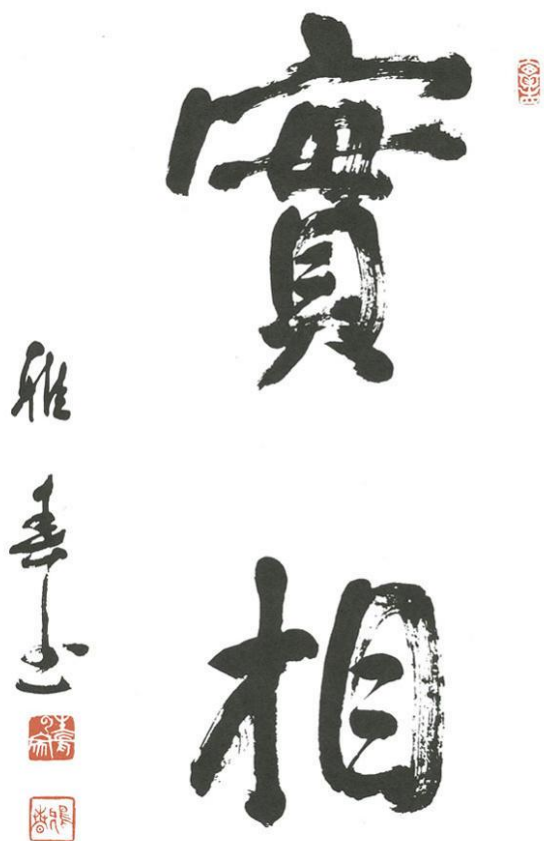 實相
雅春山